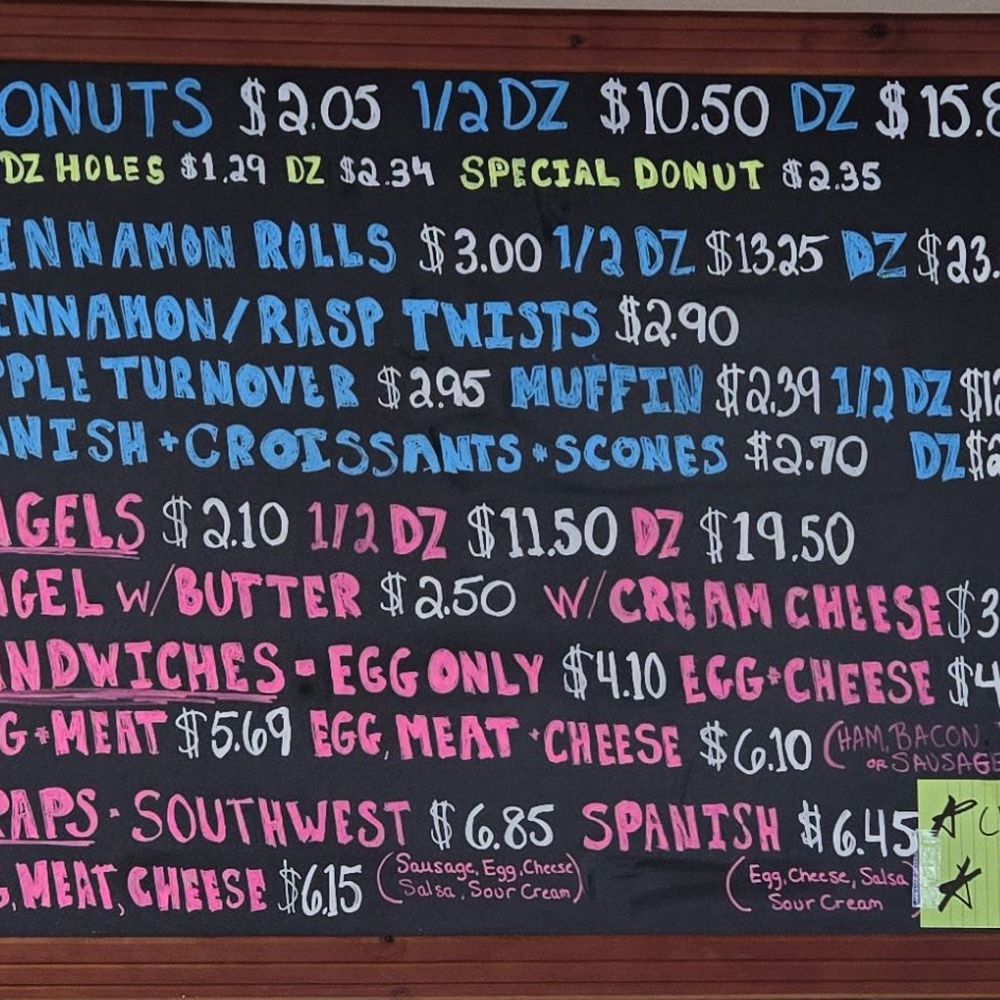 ONUTS $2.05 1/2 DZ $10.50 DZ $15.8
DZ HOLES $1.29 DZ $2.34 SPECIAL DONUT $2.35
INNAMON ROLLS $3.00 1/2 DZ $13.25 DZ $23.
INNAMON/RASP TWISTS $2.90
PPLE TURNOVER $2.95 MUFFIN $2.39 1/2 DZ $12
ANISH + CROISSANTS + SCONES $2.70 DZ $2
AGELS $2.10 1/2 DZ $11.50 DZ $19.50
AGEL W/BUTTER $2.50 W/CREAM CHEESE $3
ANDWICHES - EGG ONLY $4.10 EGG+CHEESE $4
GG+MEAT $5.69 EGG, MEAT +CHEESE $6.10 (HAM, BACON
OR SAUSAGE
RAPS - SOUTHWEST $6.85 SPANISH $6.45
G, MEAT, CHEESE $6.15 (Sausage, Egg, Cheese
Salsa, Sour Cream) (Egg, Cheese, Salsa
Sour Cream)